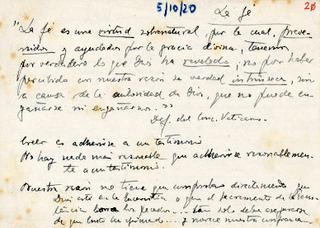 5/10/20
La fé
20
"La fé es una virtud sobrenatural, por la cual, preve-
nidos y ayudados por la gracia divina, tenemos
por verdadero lo que Dios ha revelado; no por haber
percibido con nuestra razón su verdad intrínseca, sino
a causa de la autoridad de Dios, que no puede en-
gañarse ni engañarnos."
Def. del Conc. Vaticano.
Creer es adherirse a un testimonio
No hay nada más razonable que adherirse razonablemen-
te a un testimonio.
Nuestra razón no tiene que comprobar directamente que
Dios está en la Eucaristía o que el Sacramento de la Peni-
tencia borra los pecados....